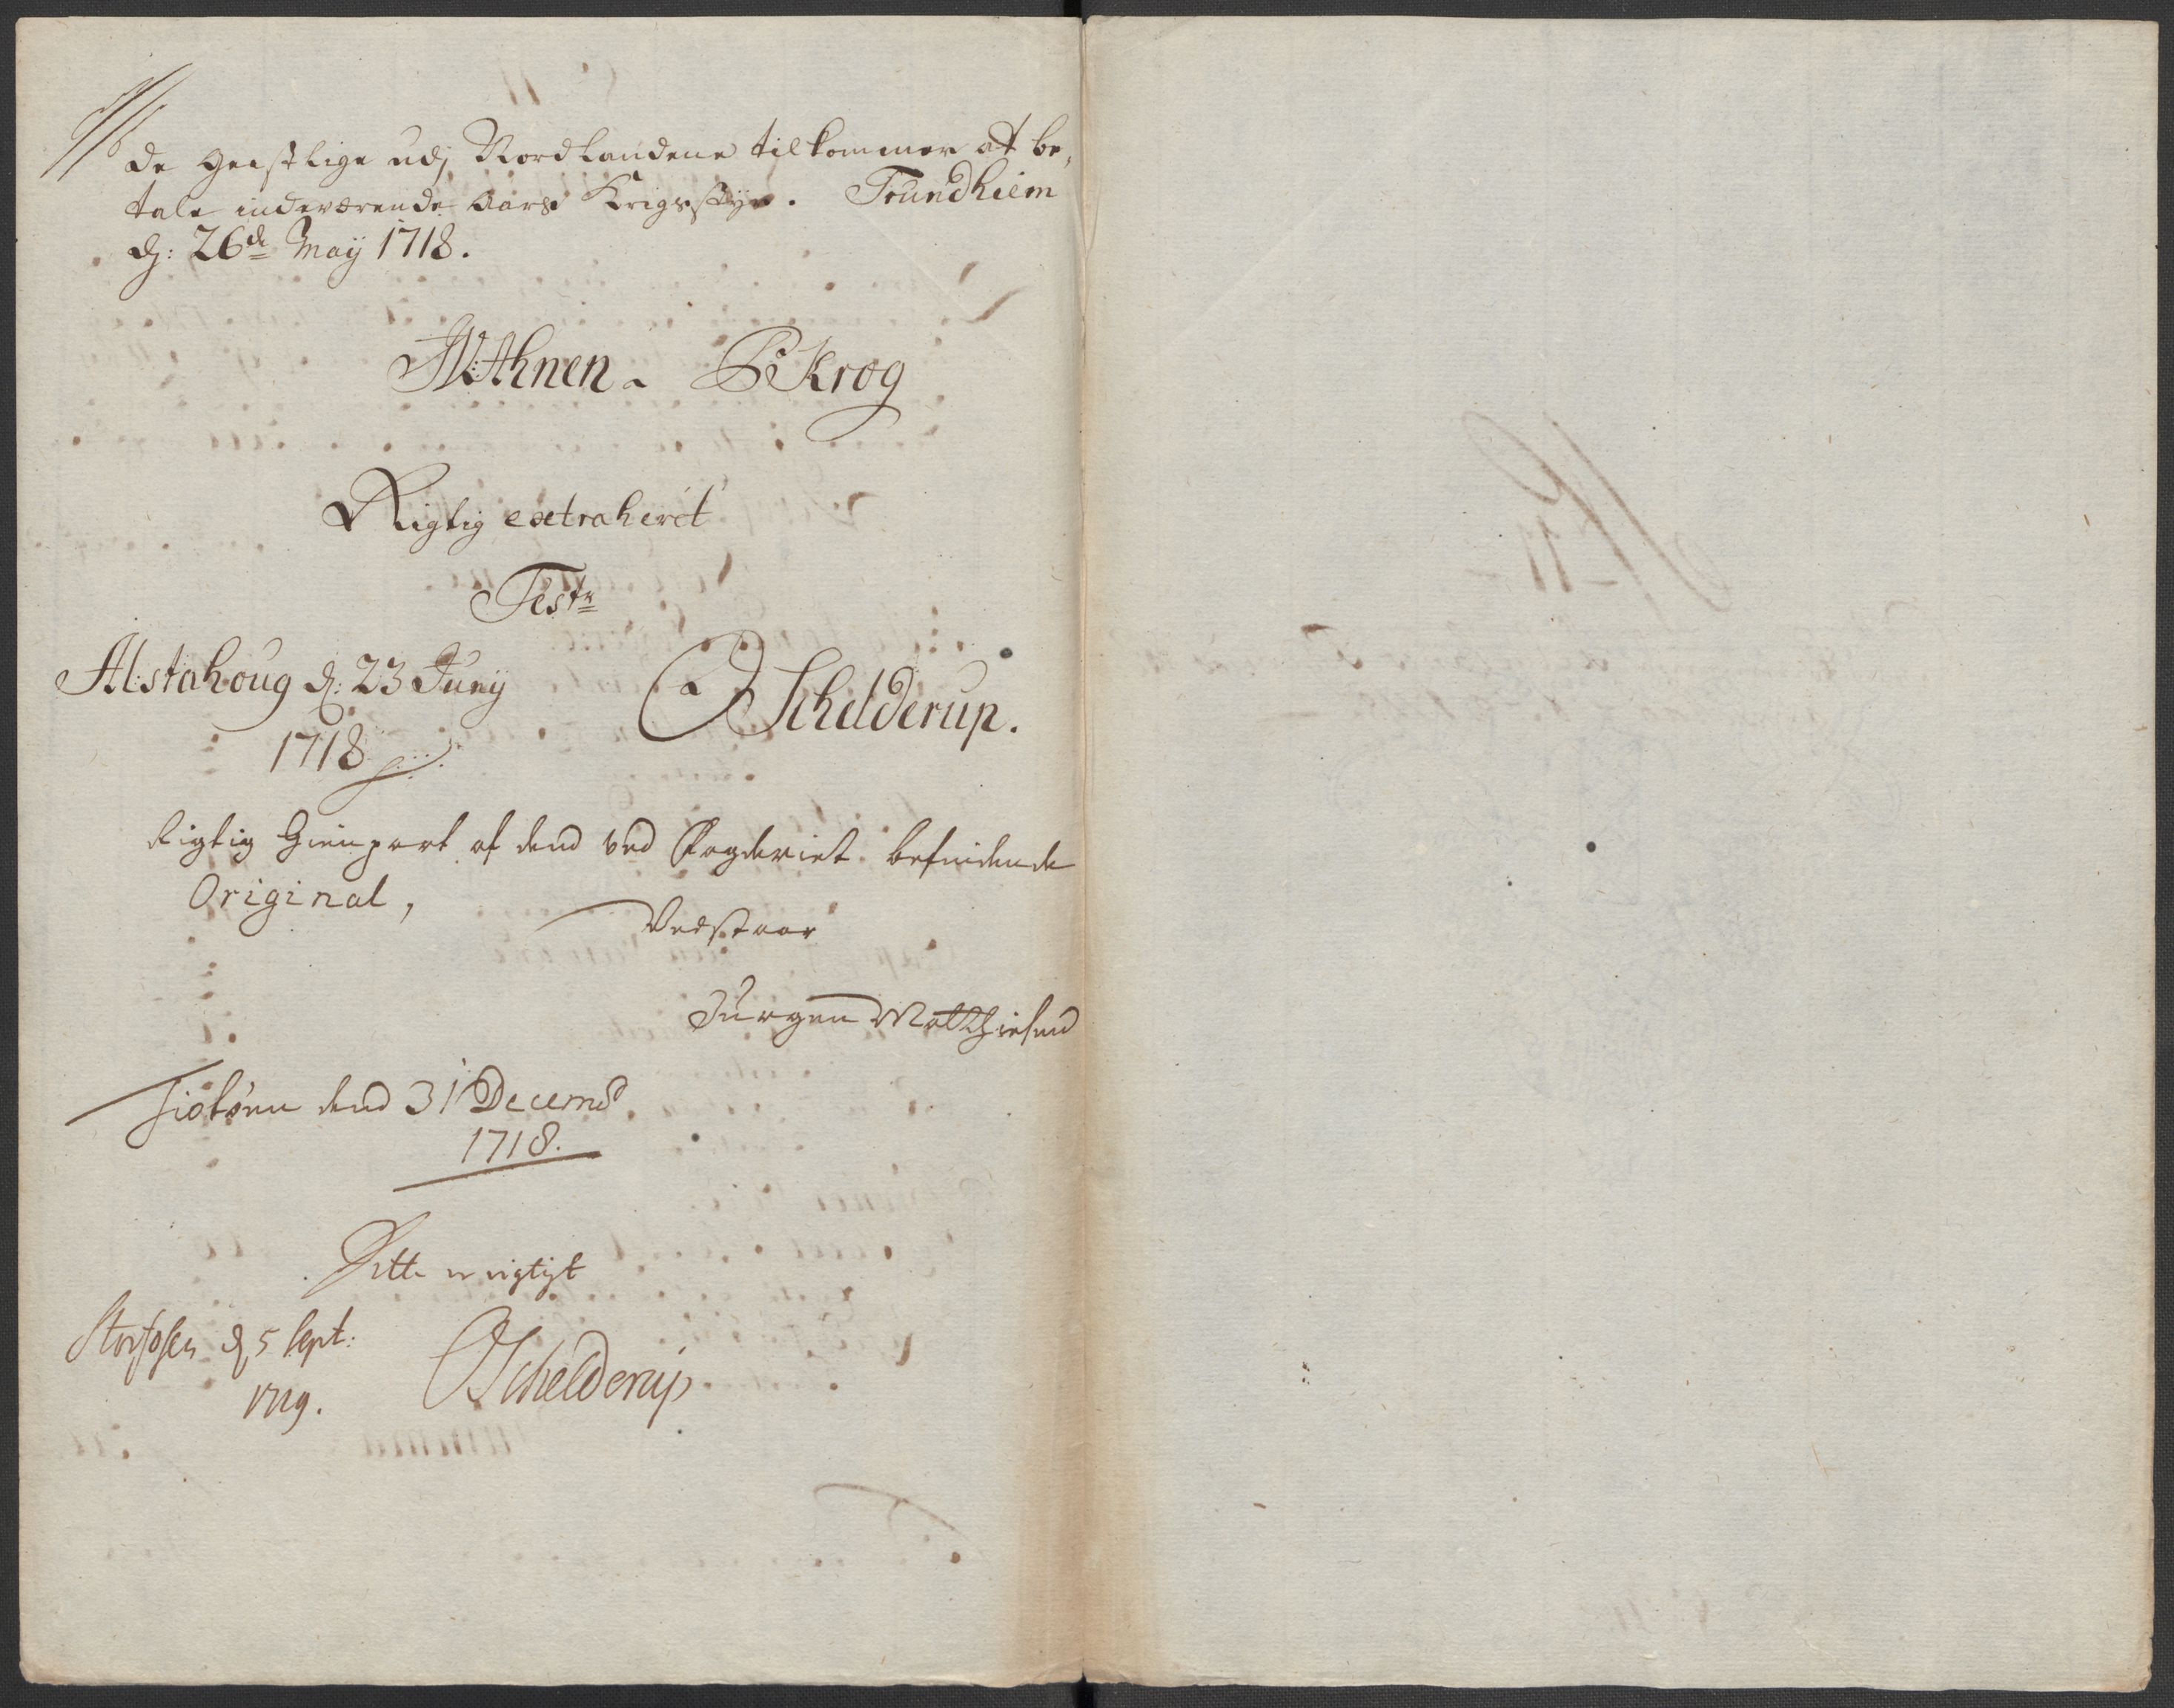 de geistlige udj Nordlandene tilkommer at be,
tale indeværende Aars Krigsstyr. Trundhiem
dj: 26de Maÿ 1718.
Ahnen. Krog
Rigtig extraherit
Test
Alstahoug d: 23 Junÿ
Schelderup.
1718
Rigtig Gienpart af dend ved Fogderiet befindende
Original,
Vedstaar
Jurgen Matthiesend
Tiøtøen dend 31 Decemb
1718.
Dette er rigtigt
Storfosen d 5 Sept:
1719.
OSchelderup